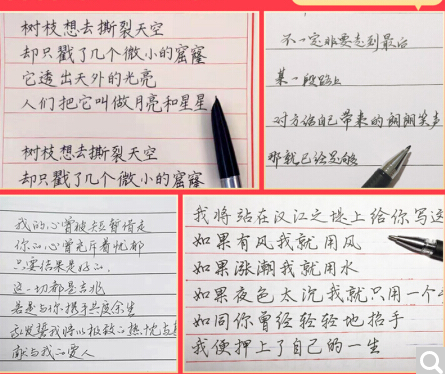 树枝想去撕裂天空
却只戳了几个微小的窟窿
它透出天外的光亮
人们把它叫做月亮和星星
树枝想去撕裂天空
却只戳了几个微小的窟窿
不一定非要走到最后
某一段路上
对方给自己带来的朗朗笑声
那就已经足够
我的心曾被短暂借走
你的心曾充斥着忧郁
只要结果是好的
这一切都是吉兆
若是与你携手共度余生
我发誓我将以极致的热忱
献与我的爱人
我将站在汉江之堤上给你写这
如果有风我就用风
如果涨潮我就用水
如果夜色太沉我就只用一个
如同你曾经轻轻地招手
我便押上了自己的一生